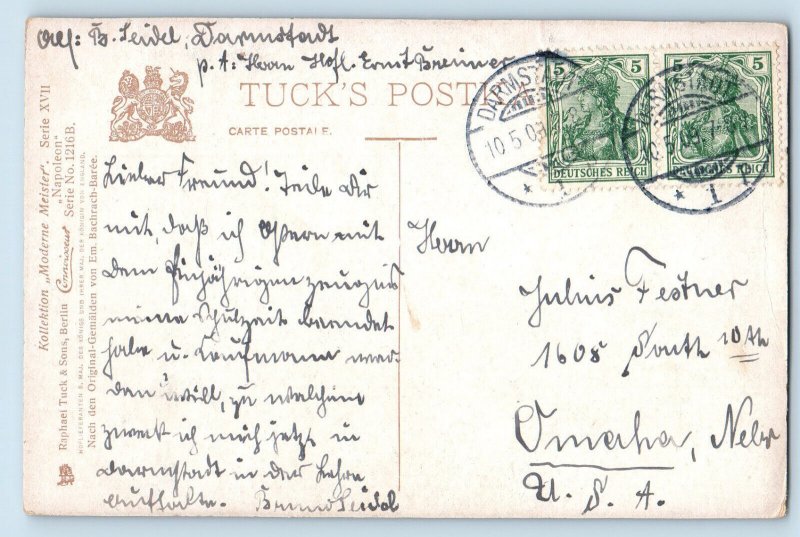 Abs: B. Seidel, Darmstadt
p. A: Herrn Hofl. Ernst Breimer
TUCK'S POST
CARTE POSTALE.
Kollektion „Moderne Meister". Serie XVII
„Napoleon"
Raphael Tuck & Sons, Berlin Connoisseur Serie No. 1216 B.
HOFLIEFERANTEN S. MAJ. DES KÖNIGS UND IHRER MAJ. DER KÖNIGIN VON ENGLAND.
Nach den Original-Gemälden von Em. Bachrach-Barée.
Lieber Freund! Teile Dir
mit, daß ich Ostern mit
dem Einjährigen zeugnis
meine Schulzeit beendet
habe u. Kaufmann wer-
den will, zu welchem
zweck ich mich jetzt in
Darmstadt in der Lehre
aufhalte. Bruno Seidel
DARMSTADT
10.5.09
* 1
DARMSTADT
10.5.09
* 1
5 5
DEUTSCHES REICH
5 5
DEUTSCHES REICH
Herrn
Julius Festner
1608 South 10th
Omaha, Nebr
U. S. A.